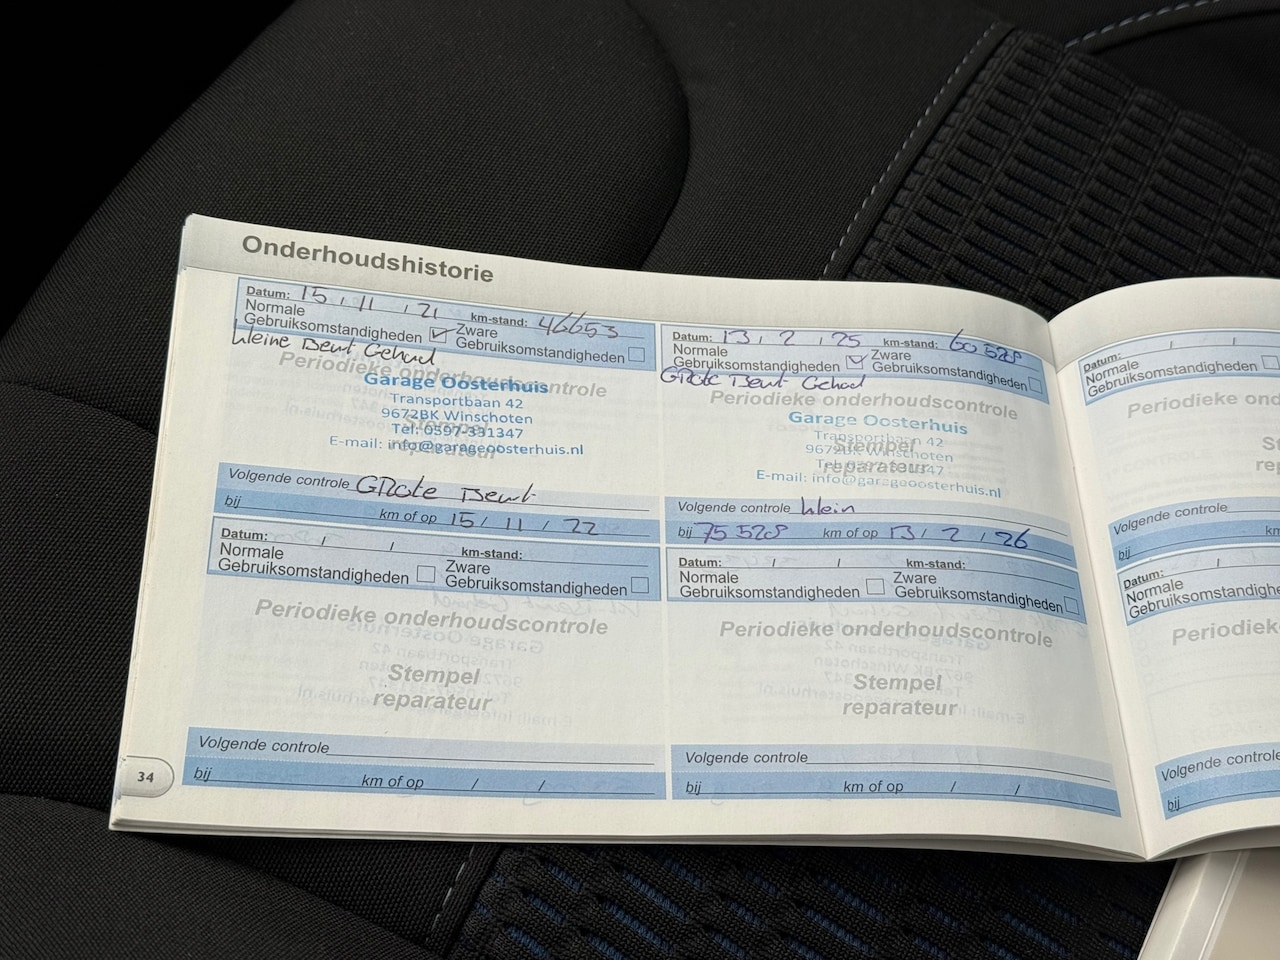 Onderhoudshistorie
Datum: 15 / 11 / 21 km-stand: 46653
Normale Gebruiksomstandigheden Zware Gebruiksomstandigheden
kleine Beurt Gehad
Periodieke onderhoudscontrole
Garage Oosterhuis
Transportbaan 42
9672BK Winschoten
Stempel
Tel: 0597-331347
reparateur
E-mail: info@garageoosterhuis.nl
Volgende controle GRote Beurt
bij km of op 15 / 11 / 22
Datum: / / km-stand:
Normale Gebruiksomstandigheden Zware Gebruiksomstandigheden
Periodieke onderhoudscontrole
Stempel
reparateur
Volgende controle
bij km of op / /
34
Datum: 13 / 2 / 25 km-stand: 60528
Normale Gebruiksomstandigheden Zware Gebruiksomstandigheden
GRote Beurt Gehad
Periodieke onderhoudscontrole
Garage Oosterhuis
Transportbaan 42
Stempel
9672BK Winschoten
reparateur
E-mail: info@garageoosterhuis.nl
Volgende controle klein
bij 75528 km of op 13 / 2 / 26
Datum: / / km-stand:
Normale Gebruiksomstandigheden Zware Gebruiksomstandigheden
Periodieke onderhoudscontrole
Stempel
reparateur
Volgende controle
bij km of op / /
Datum: / /
Normale
Gebruiksomstandigheden
Periodieke ond
S
re
Volgende controle
bij km
Datum: /
Normale
Gebruiksomstandighede
Periodiek
Volgende controle
bij